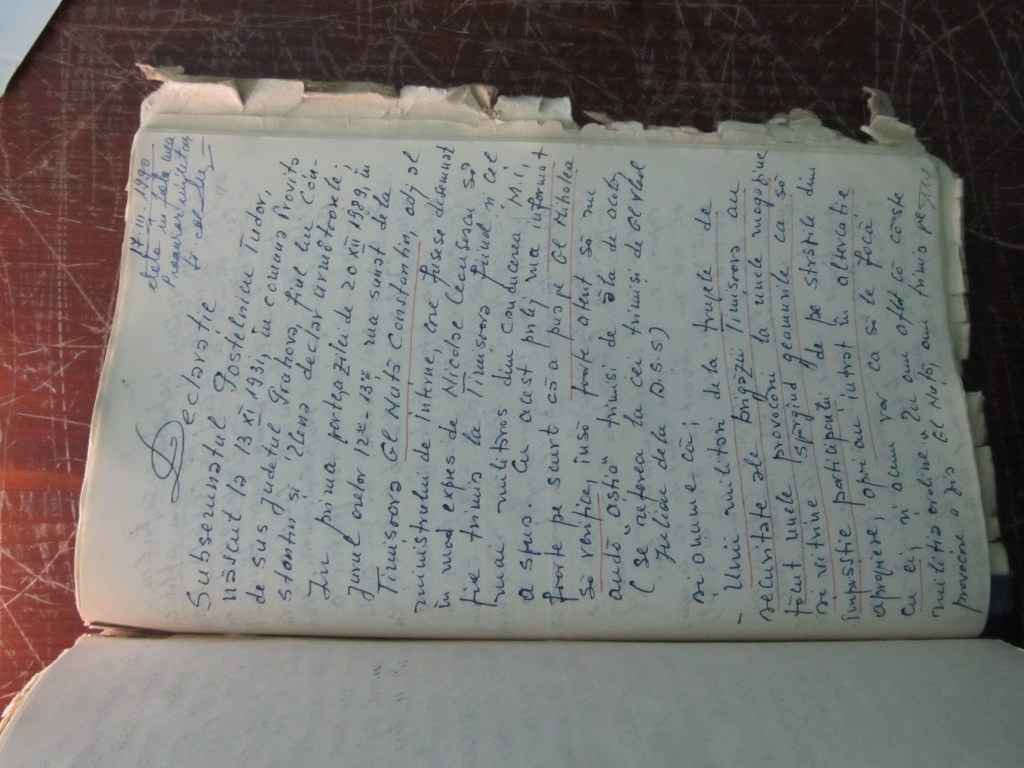 17. III. 1990
data în fața mea
Procuror militar
Declarație
Subsemnatul Postelnicu Tudor,
născut la 13 XI 1931, în comuna Provița
de sus județul Prahova, fiul lui Con-
stantin și Elena declar următoarele:
In prima parte a zilei de 20 XII 1989, în
jurul orelor 12°°-13°° m-a sunat de la
Timișoara Gl Nuță Constantin, adj al
ministrului de interne, care fusese desemnat
în mod expres de Nicolae Ceaușescu să
fie trimis la Timișoara fiind și cel
mai militaros din conducerea M.I,
a spus. Cu acest prilej m-a informat
foarte pe scurt că a pus pe Gl Mihalea
să verifice, însă foarte atent să nu
audă "ăștia" trimiși de ăla de acolo
(se referea la cei trimiși de Gl Vlad
Iulian de la D.S.S)
și anume că;
- Unii militari de la trupele de
securitate ale brigăzii Timișoara au
făcut unele provocări la unele magazine
și vitrine spărgînd geamurile ca să
împrăștie participanții de pe străzile din
apropiere, apoi au intrat în altercație
cu ei și acum vor ca să le facă
miliția ordine. Eu am aflat aceste
a zis Gl Nuță, am trimis pe